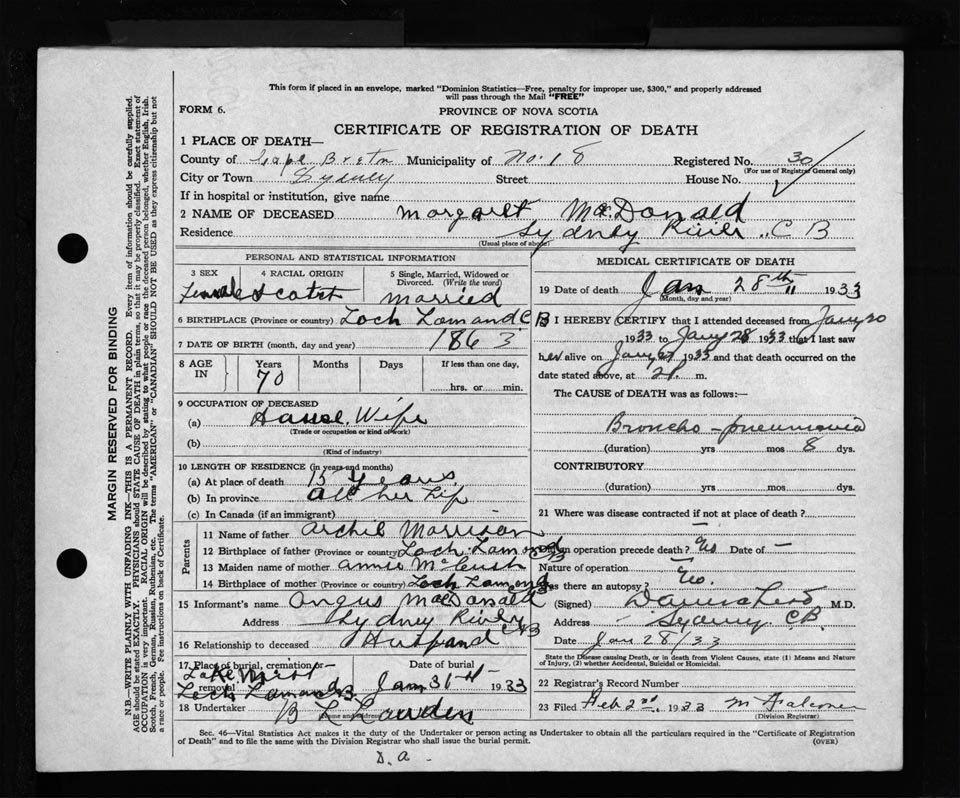 This form if placed in an envelope, marked "Dominion Statistics—Free, penalty for improper use, $300," and properly addressed
will pass through the Mail "FREE"
FORM 6.
PROVINCE OF NOVA SCOTIA
CERTIFICATE OF REGISTRATION OF DEATH
1 PLACE OF DEATH—
County of Cape Breton Municipality of No. 18 Registered No. 30
(For use of Registrar General only)
City or Town Sydney Street House No.
If in hospital or institution, give name
2 NAME OF DECEASED Margaret MacDonald
Residence Sydney River C B
(Usual place of abode)
PERSONAL AND STATISTICAL INFORMATION
3 SEX 4 RACIAL ORIGIN 5 Single, Married, Widowed or
Divorced. (Write the word)
Female Scotch Married
6 BIRTHPLACE (Province or country) Loch Lomand C B
7 DATE OF BIRTH (month, day and year) 1863
8 AGE IN Years Months Days If less than one day,
70 hrs. or min.
9 OCCUPATION OF DECEASED
(a) House Wife
(Trade or occupation or kind of work)
(b)
(Kind of industry)
10 LENGTH OF RESIDENCE (in years and months)
(a) At place of death 15 Years
(b) In province all her life
(c) In Canada (if an immigrant)
Parents
11 Name of father Archie Morrison
12 Birthplace of father (Province or country) Loch Lamond CB
13 Maiden name of mother Annie
14 Birthplace of mother (Province or country) Loch Lamond
15 Informant's name Angus MacDonald
Address Sydney River CB
16 Relationship to deceased Husband
17 Place of burial, cremation or removal Date of burial
Loch Lamand CB Jan 31st 1933
18 Undertaker B L Lowden
(Name and address)
MEDICAL CERTIFICATE OF DEATH
19 Date of death Jan 28th 1933
(Month, day and year)
20 I HEREBY CERTIFY that I attended deceased from Jany 20
1933 to Jany 28 1933 that I last saw
her alive on Jany 27 1933 and that death occurred on the
date stated above, at 2 P. m.
The CAUSE of DEATH was as follows:
Broncho-pneumonia
(duration) yrs mos 8 dys.
CONTRIBUTORY
(duration) yrs mos dys.
21 Where was disease contracted if not at place of death?
Did an operation precede death? No Date of —
Nature of operation —
Was there an autopsy? No.
(Signed) M.D.
Address Sydney C.B.
Date Jan 28/33
State the Disease causing Death, or in death from Violent Causes, state (1) Means and Nature
of Injury, (2) whether Accidental, Suicidal or Homicidal.
22 Registrar's Record Number
23 Filed Feb 2nd, 1933 M Falconer
(Division Registrar)
Sec. 46—Vital Statistics Act makes it the duty of the Undertaker or person acting as Undertaker to obtain all the particulars required in the "Certificate of Registration
of Death" and to file the same with the Division Registrar who shall issue the burial permit. (OVER)
D. A.
MARGIN RESERVED FOR BINDING
N.B.—WRITE PLAINLY WITH UNFADING INK—THIS IS A PERMANENT RECORD. Every item of information should be carefully supplied.
AGE should be stated EXACTLY. PHYSICIANS should STATE CAUSE OF DEATH in plain terms, so that it may be properly classified. Exact statement of
OCCUPATION is very important. RACIAL ORIGIN will be described by stating to what people or race the deceased person belonged, whether English, Irish,
Scotch, French, German, Russian, Ruthenian, etc. The terms "AMERICAN" or "CANADIAN" SHOULD NOT BE USED as they express citizenship but not
a race or people. Fee instructions on back of Certificate.